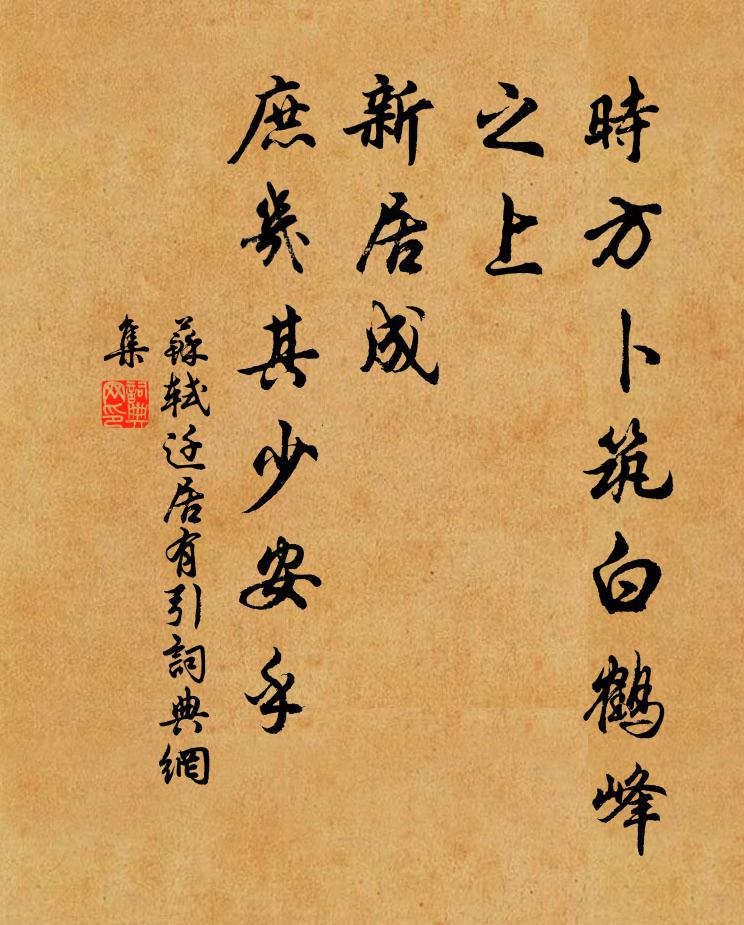 時方卜筑白鶴峰
之上
新居成
庶幾其少安乎
蘇軾迁居有引詞典網
集
詞典
网印